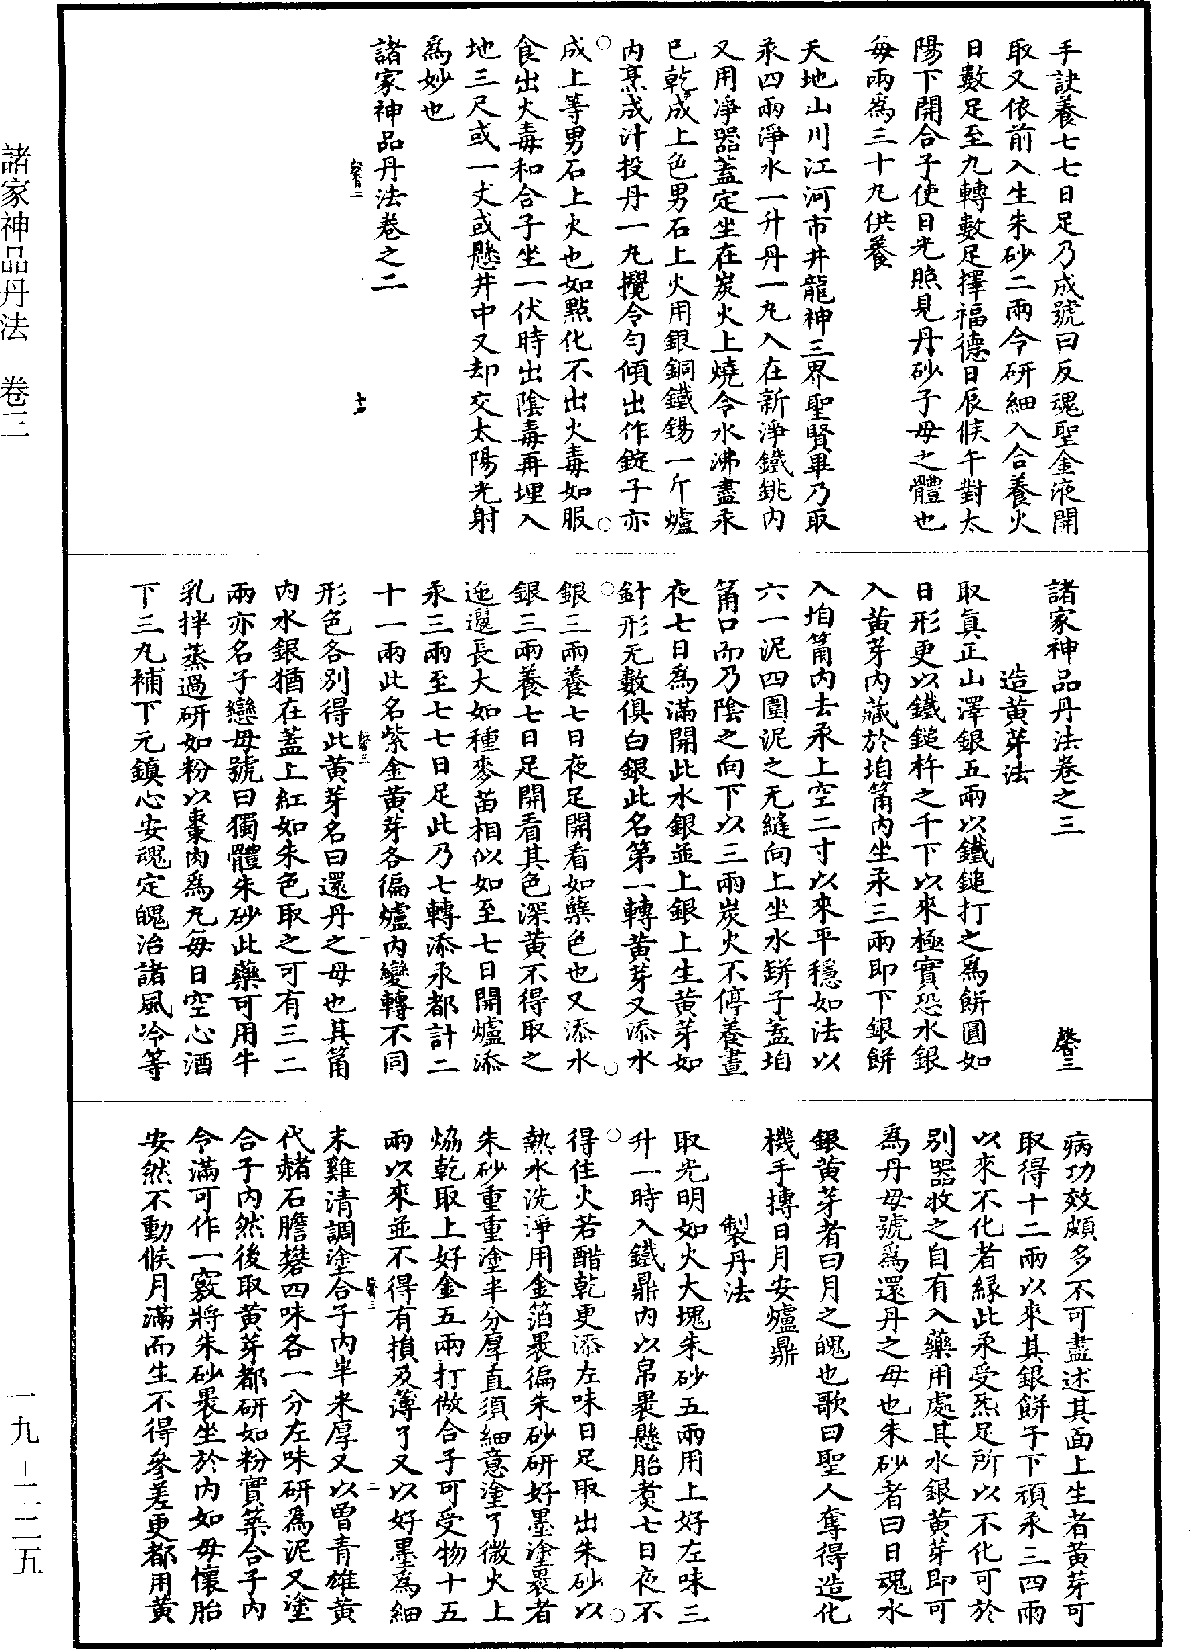 手訣養七七日足乃成號曰反魂聖金液開
取又依前入生朱砂二兩令研細入合養火
日數足至九轉數足擇福德日辰候午對太
陽下開合子使日光照見丹砂子母之體也
每兩爲三十九供養
天地山川江河市井龍神三界聖賢畢乃取
汞四兩淨水一升丹一丸入在新淨鐵銚內
又用淨器蓋定坐在炭火上燒令水沸盡汞
已乾成上色男石上火用銀銅鐵錫一斤爐
內烹成汁投丹一丸攪令勻傾出作錠子亦
成上等男石上火也如點化不出火毒如服
食出火毒和合子坐一伏時出陰毒再埋入
地三尺或一丈或懸井中又却交太陽光射
爲妙也
諸家神品丹法卷之二
諸家神品丹法卷之三
造黃芽法
取真正山澤銀五兩以鐵鎚打之爲餅圓如
日形更以鐵鎚杵之千下以來極實恐水銀
入黃芽內藏於坩筩內坐汞三兩即下銀餅
入坩筩內去汞上空二寸以來平穩如法以
六一泥四圍泥之无縫向上坐水缾子蓋坩
筩口而乃陰之向下以三兩炭火不停養晝
夜七日爲滿開此水銀並上銀上生黃芽如
針形无數俱白銀此名第一轉黃芽又添水
銀三兩養七日夜足開看如蘗色也又添水
銀三兩養七日足開看其色深黃不得取之
迤邐長大如種麥苗相似如至七日開爐添
汞三兩至七七日足此乃七轉添汞都計二
十一兩此名紫金黃芽各徧爐內變轉不同
形色各別得此黃芽名曰還丹之母也其筩
內水銀猶在蓋上紅如朱色取之可有三二
兩亦名子戀母號曰獨體朱砂此藥可用牛
乳拌蒸過研如粉以棗肉爲丸每日空心酒
下三丸補下元鎮心安魂定魄治諸風冷等
病功效頗多不可盡述其面上生者黃芽可
取得十二兩以來其銀餅子下頑汞三四兩
以來不化者緣此汞受炁足所以不化可於
別器收之自有入藥用處其水銀黃芽即可
爲丹母號爲還丹之母也朱砂者曰日魂水
銀黃芽者曰月之魄也歌曰聖人奪得造化
機手摶日月安爐鼎
製丹法
取光明如火大塊朱砂五兩用上好左味三
升一時入鐵鼎內以帛裹懸胎煑七日夜不
得住火若醋乾更添左味日足取出朱砂以
熱水洗淨用金箔裹徧朱砂研好墨塗裹者
朱砂重重塗半分厚直須細意塗了微火上
煿乾取上好金五兩打做合子可受物十五
兩以來並不得有損及薄了又以好墨爲細
末雞清調塗合子內半米厚又以曾青雄黃
代赭石膽礬四味各一分左味研爲泥又塗
合子內然後取黃芽都研如粉實築合子內
令滿可作一竅將朱砂裹坐於內如母懷胎
安然不動候月滿而生不得參差更都用黃
諸家神品丹法　卷三
一九—二二五